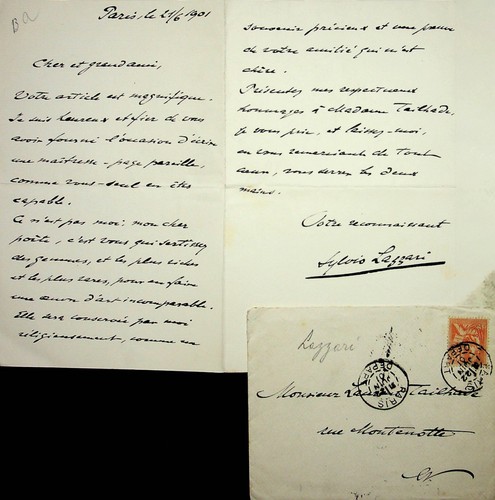 Ba
Paris, le 21/6 1901
Cher et grand ami,
Votre article est magnifique.
Je suis heureux et fier de vous
avoir fourni l'occasion d'écrire
une maîtresse-page pareille,
comme vous-seul en êtes
capable.
Ce n'est pas moi, mon cher
poète, c'est vous qui sertissez
des gemmes, et les plus riches
et les plus rares, pour en faire
une œuvre d'art incomparable.
Elle sera conservée par moi
religieusement, comme un
souvenir précieux et une preuve
de votre amitié qui m'est
chère.
Présentez mes respectueux
hommages à Madame Tailhade,
je vous prie, et laissez-moi,
en vous remerciant de tout
cœur, vous serrer les deux
mains.
Votre reconnaissant
Sylvio Lazzari
Lazzari
PARIS
DEPART
PARIS
DEPART
Monsieur Laurent Tailhade
rue Montenotte